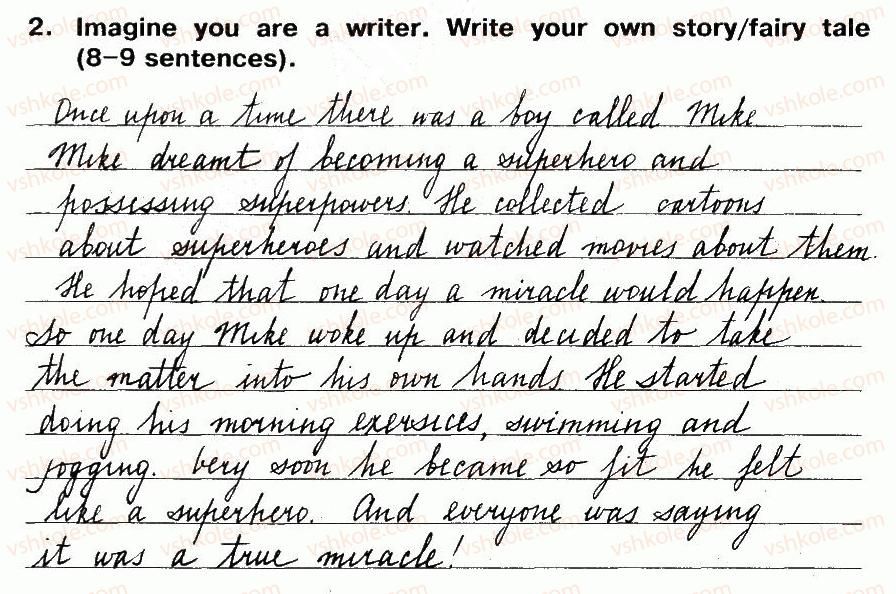 2. Imagine you are a writer. Write your own story/fairy tale
(8–9 sentences).
Once upon a time there was a boy called Mike
Mike dreamt of becoming a superhero and
possessing superpowers. He collected cartoons
about superheroes and watched movies about them.
He hoped that one day a miracle would happen.
So one day Mike woke up and decided to take
the matter into his own hands He started
doing his morning exersices, swimming and
jogging. Very soon he became so fit he felt
like a superhero. And everyone was saying
it was a true miracle!